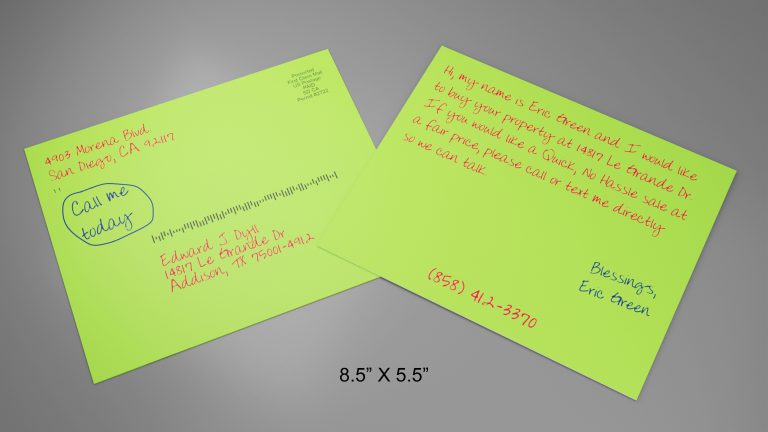 Presorted
First Class Mail
US Postage
PAID
SD CA
Permit #2722
4903 Morena Blvd
San Diego, CA 92117
Call me
today
Edward J. Dyll
14817 Le Grande Dr
Addison, TX 75001-4912
Hi, my name is Eric Green and I would like
to buy your property at 14817 Le Grande Dr.
If you would like a Quick, No Hassle sale at
a fair price, please call or text me directly
so we can talk
Blessings,
Eric Green
(858) 412-3370
8.5” X 5.5”